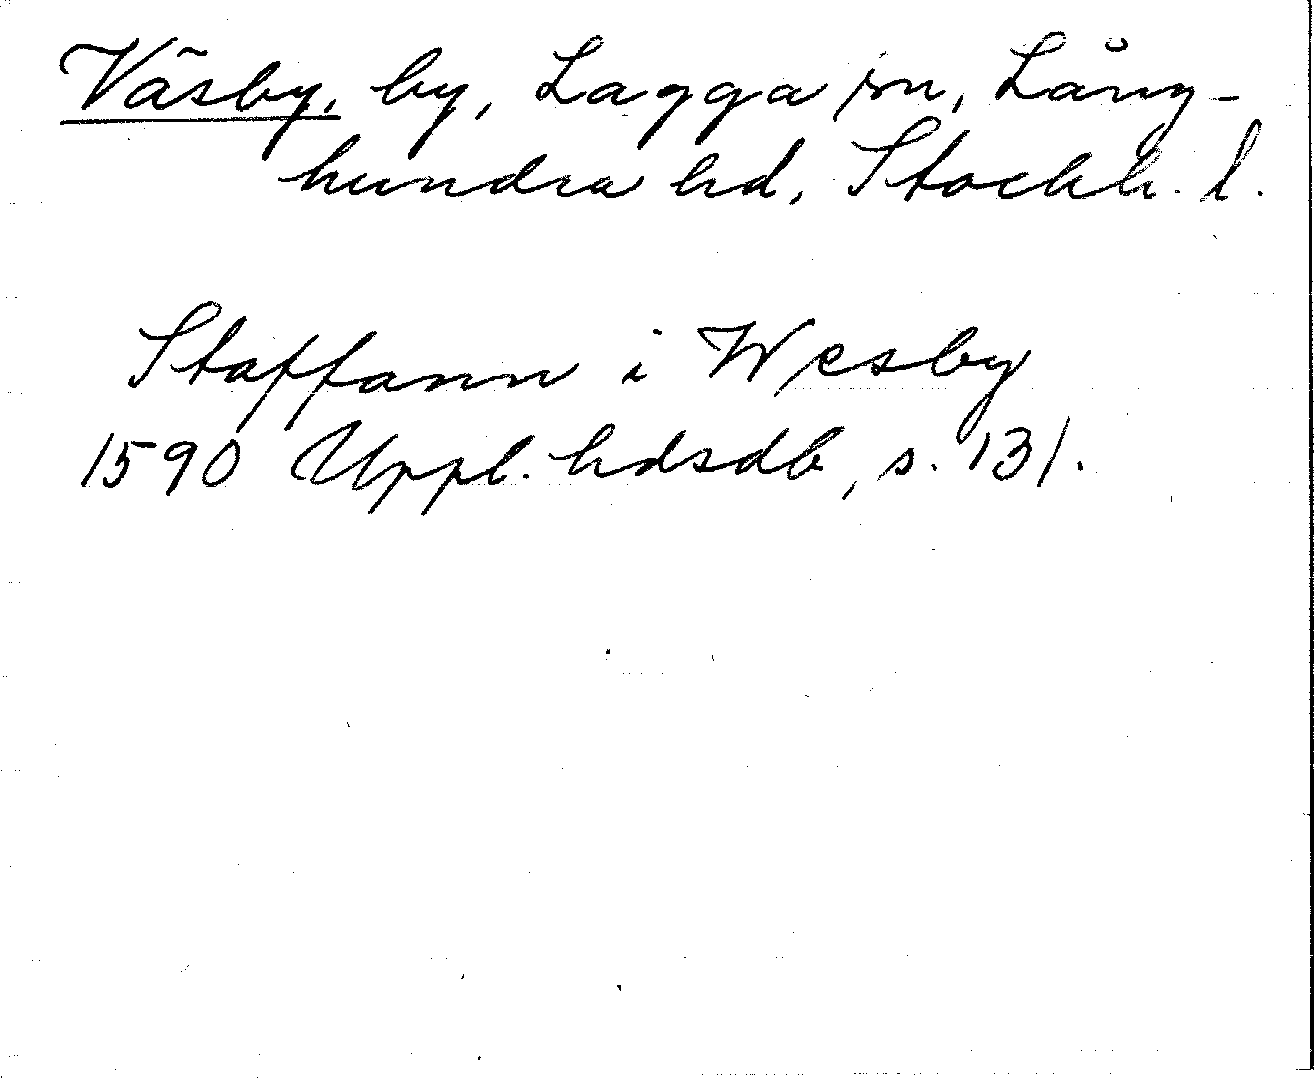 Väsby, by, Lagga sn, Lång-
hundra hd, Stockh. l.
Staffann i Wesby
1590 Uppl. hdsdb, s. 131.